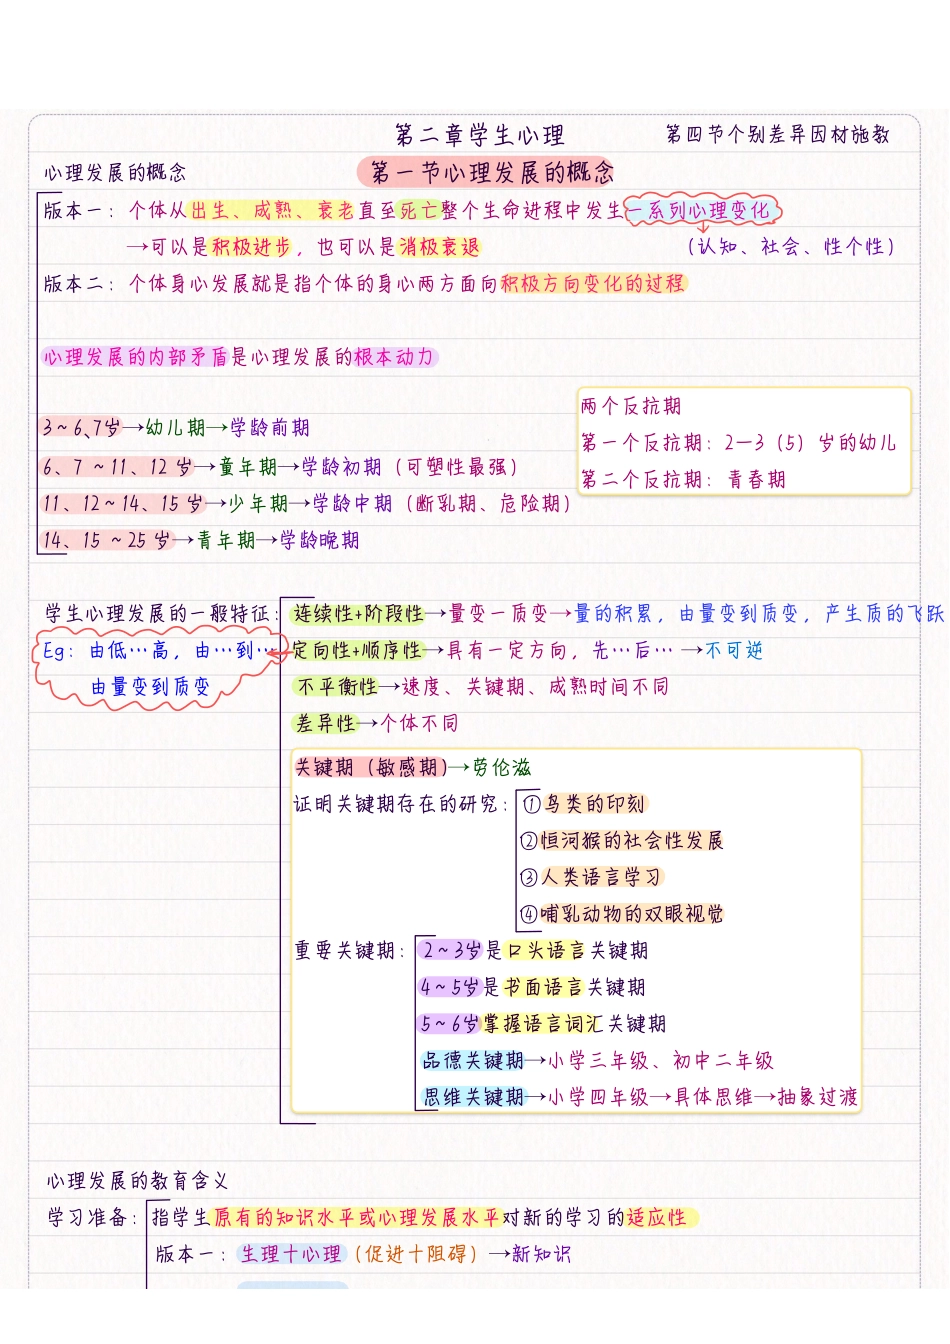 第二章学生心理
第四节个别差异因材施教
心理发展的概念
第一节心理发展的概念
版本一：个体从出生、成熟、衰老直至死亡整个生命进程中发生一系列心理变化
→可以是积极进步，也可以是消极衰退
（认知、社会、性个性）
版本二：个体身心发展就是指个体的身心两方面向积极方向变化的过程
心理发展的内部矛盾是心理发展的根本动力
两个反抗期
第一个反抗期：2—3（5）岁的幼儿
第二个反抗期：青春期
3~6、7岁→幼儿期→学龄前期
6、7~11、12岁→童年期→学龄初期（可塑性最强）
11、12~14、15岁→少年期→学龄中期（断乳期、危险期）
14、15~25岁→青年期→学龄晚期
学生心理发展的一般特征：连续性+阶段性→量变一质变→量的积累，由量变到质变，产生质的飞跃
Eg：由低…高，由…到…
由量变到质变
定向性+顺序性→具有一定方向，先…后…→不可逆
不平衡性→速度、关键期、成熟时间不同
差异性→个体不同
关键期（敏感期）→劳伦滋
证明关键期存在的研究：①鸟类的印刻
②恒河猴的社会性发展
③人类语言学习
④哺乳动物的双眼视觉
重要关键期：2~3岁是口头语言关键期
4~5岁是书面语言关键期
5~6岁掌握语言词汇关键期
品德关键期→小学三年级、初中二年级
思维关键期→小学四年级→具体思维→抽象过渡
心理发展的教育含义
学习准备：指学生原有的知识水平或心理发展水平对新的学习的适应性
版本一：生理十心理（促进十阻碍）→新知识